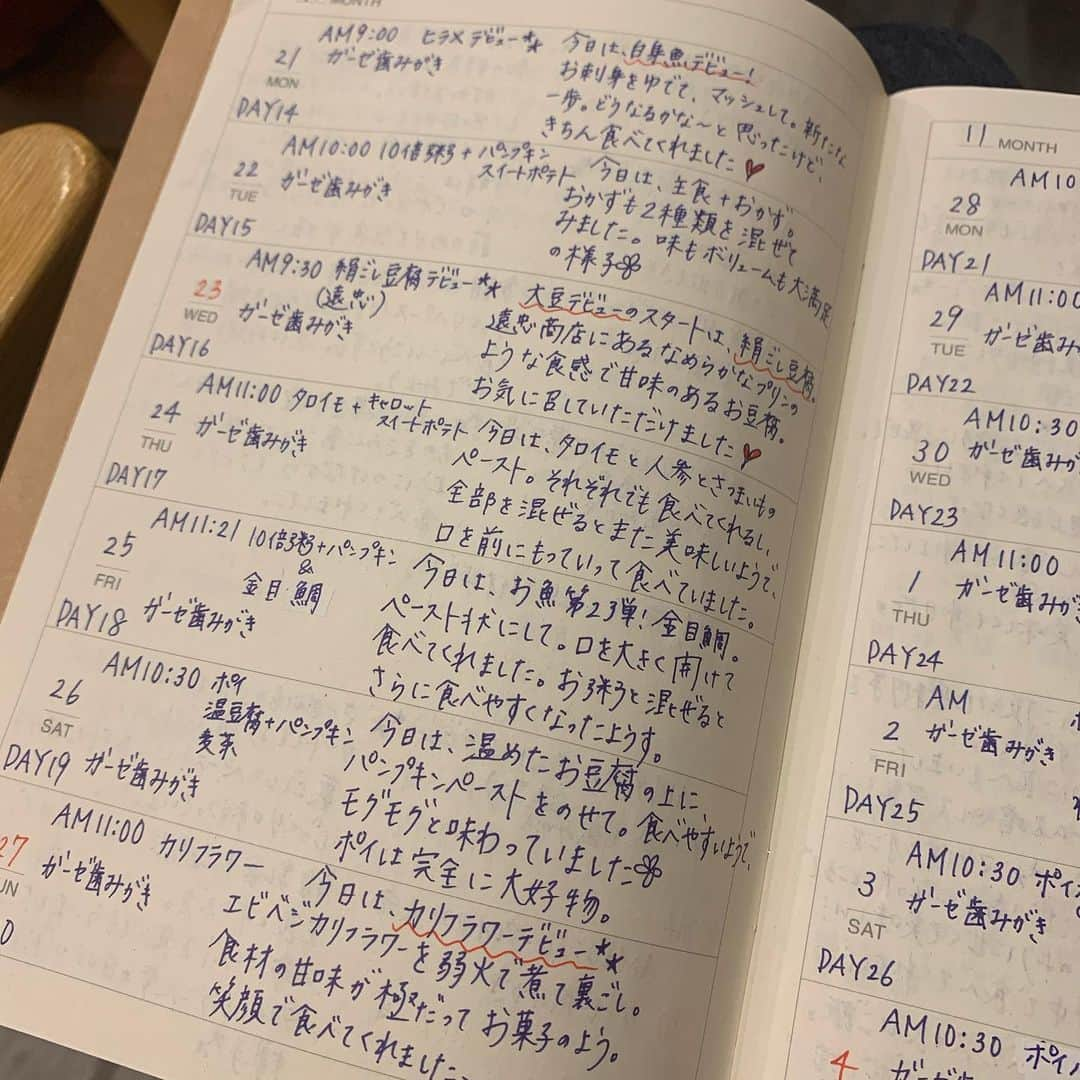 MONTH
AM9:00 ヒラメデビュー
21
MON
ガーゼ歯みがき
DAY14
今日は、白身魚デビュー!
お刺身をゆでて、マッシュして。新たな
一歩。どうなるかな〜と思ったけど、
きちん食べてくれました
AM10:00 10倍粥+パンプキン
スイートポテト
22
TUE
ガーゼ歯みがき
DAY15
今日は、主食+おかず。
おかずも2種類を混ぜて
みました。味もボリュームも大満足
の様子
AM9:30 絹ごし豆腐デビュー
(遠忠)
23
WED
ガーゼ歯みがき
DAY16
大豆デビューのスタートは、絹ごし豆腐。
遠忠商店にあるなめらかなプリンの
ような食感で甘味のあるお豆腐。
お気に召していただけました
AM11:00 タロイモ+キャロット
スイートポテト
24
THU
ガーゼ歯みがき
DAY17
今日は、タロイモと人参とさつまいもの
ペースト。それぞれでも食べてくれるし、
全部を混ぜるとまた美味しいようで、
口を前にもっていって食べていました。
AM11:21 10倍粥+パンプキン
&
金目鯛
25
FRI
ガーゼ歯みがき
DAY18
今日は、お魚第2弾!金目鯛。
ペースト状にして。口を大きく開けて
食べてくれました。お粥と混ぜると
さらに食べやすくなったようす。
AM10:30 ポイ
温豆腐+パンプキン
麦茶
26
SAT
ガーゼ歯みがき
DAY19
今日は、温めたお豆腐の上に
パンプキンペーストをのせて。食べやすいようで、
モグモグと味わっていました
ポイは完全に大好物。
AM11:00 カリフラワー
27
UN
ガーゼ歯みがき
0
今日は、カリフラワーデビュー
エビベジカリフラワーを弱火で煮て裏ごし。
食材の甘味が極だってお菓子のよう。
笑顔で食べてくれました
11 MONTH
AM10
28
MON
DAY21
AM11:00
29
TUE
ガーゼ歯みが
DAY22
AM10:30
30
WED
ガーゼ歯みが
DAY23
AM11:00
1
THU
ガーゼ歯みが
DAY24
AM
2
FRI
ガーゼ歯みがき
DAY25
AM10:30 ポイ
3
SAT
ガーゼ歯みがき
DAY26
AM10:30 ポイ
4
ガーゼ歯みがき